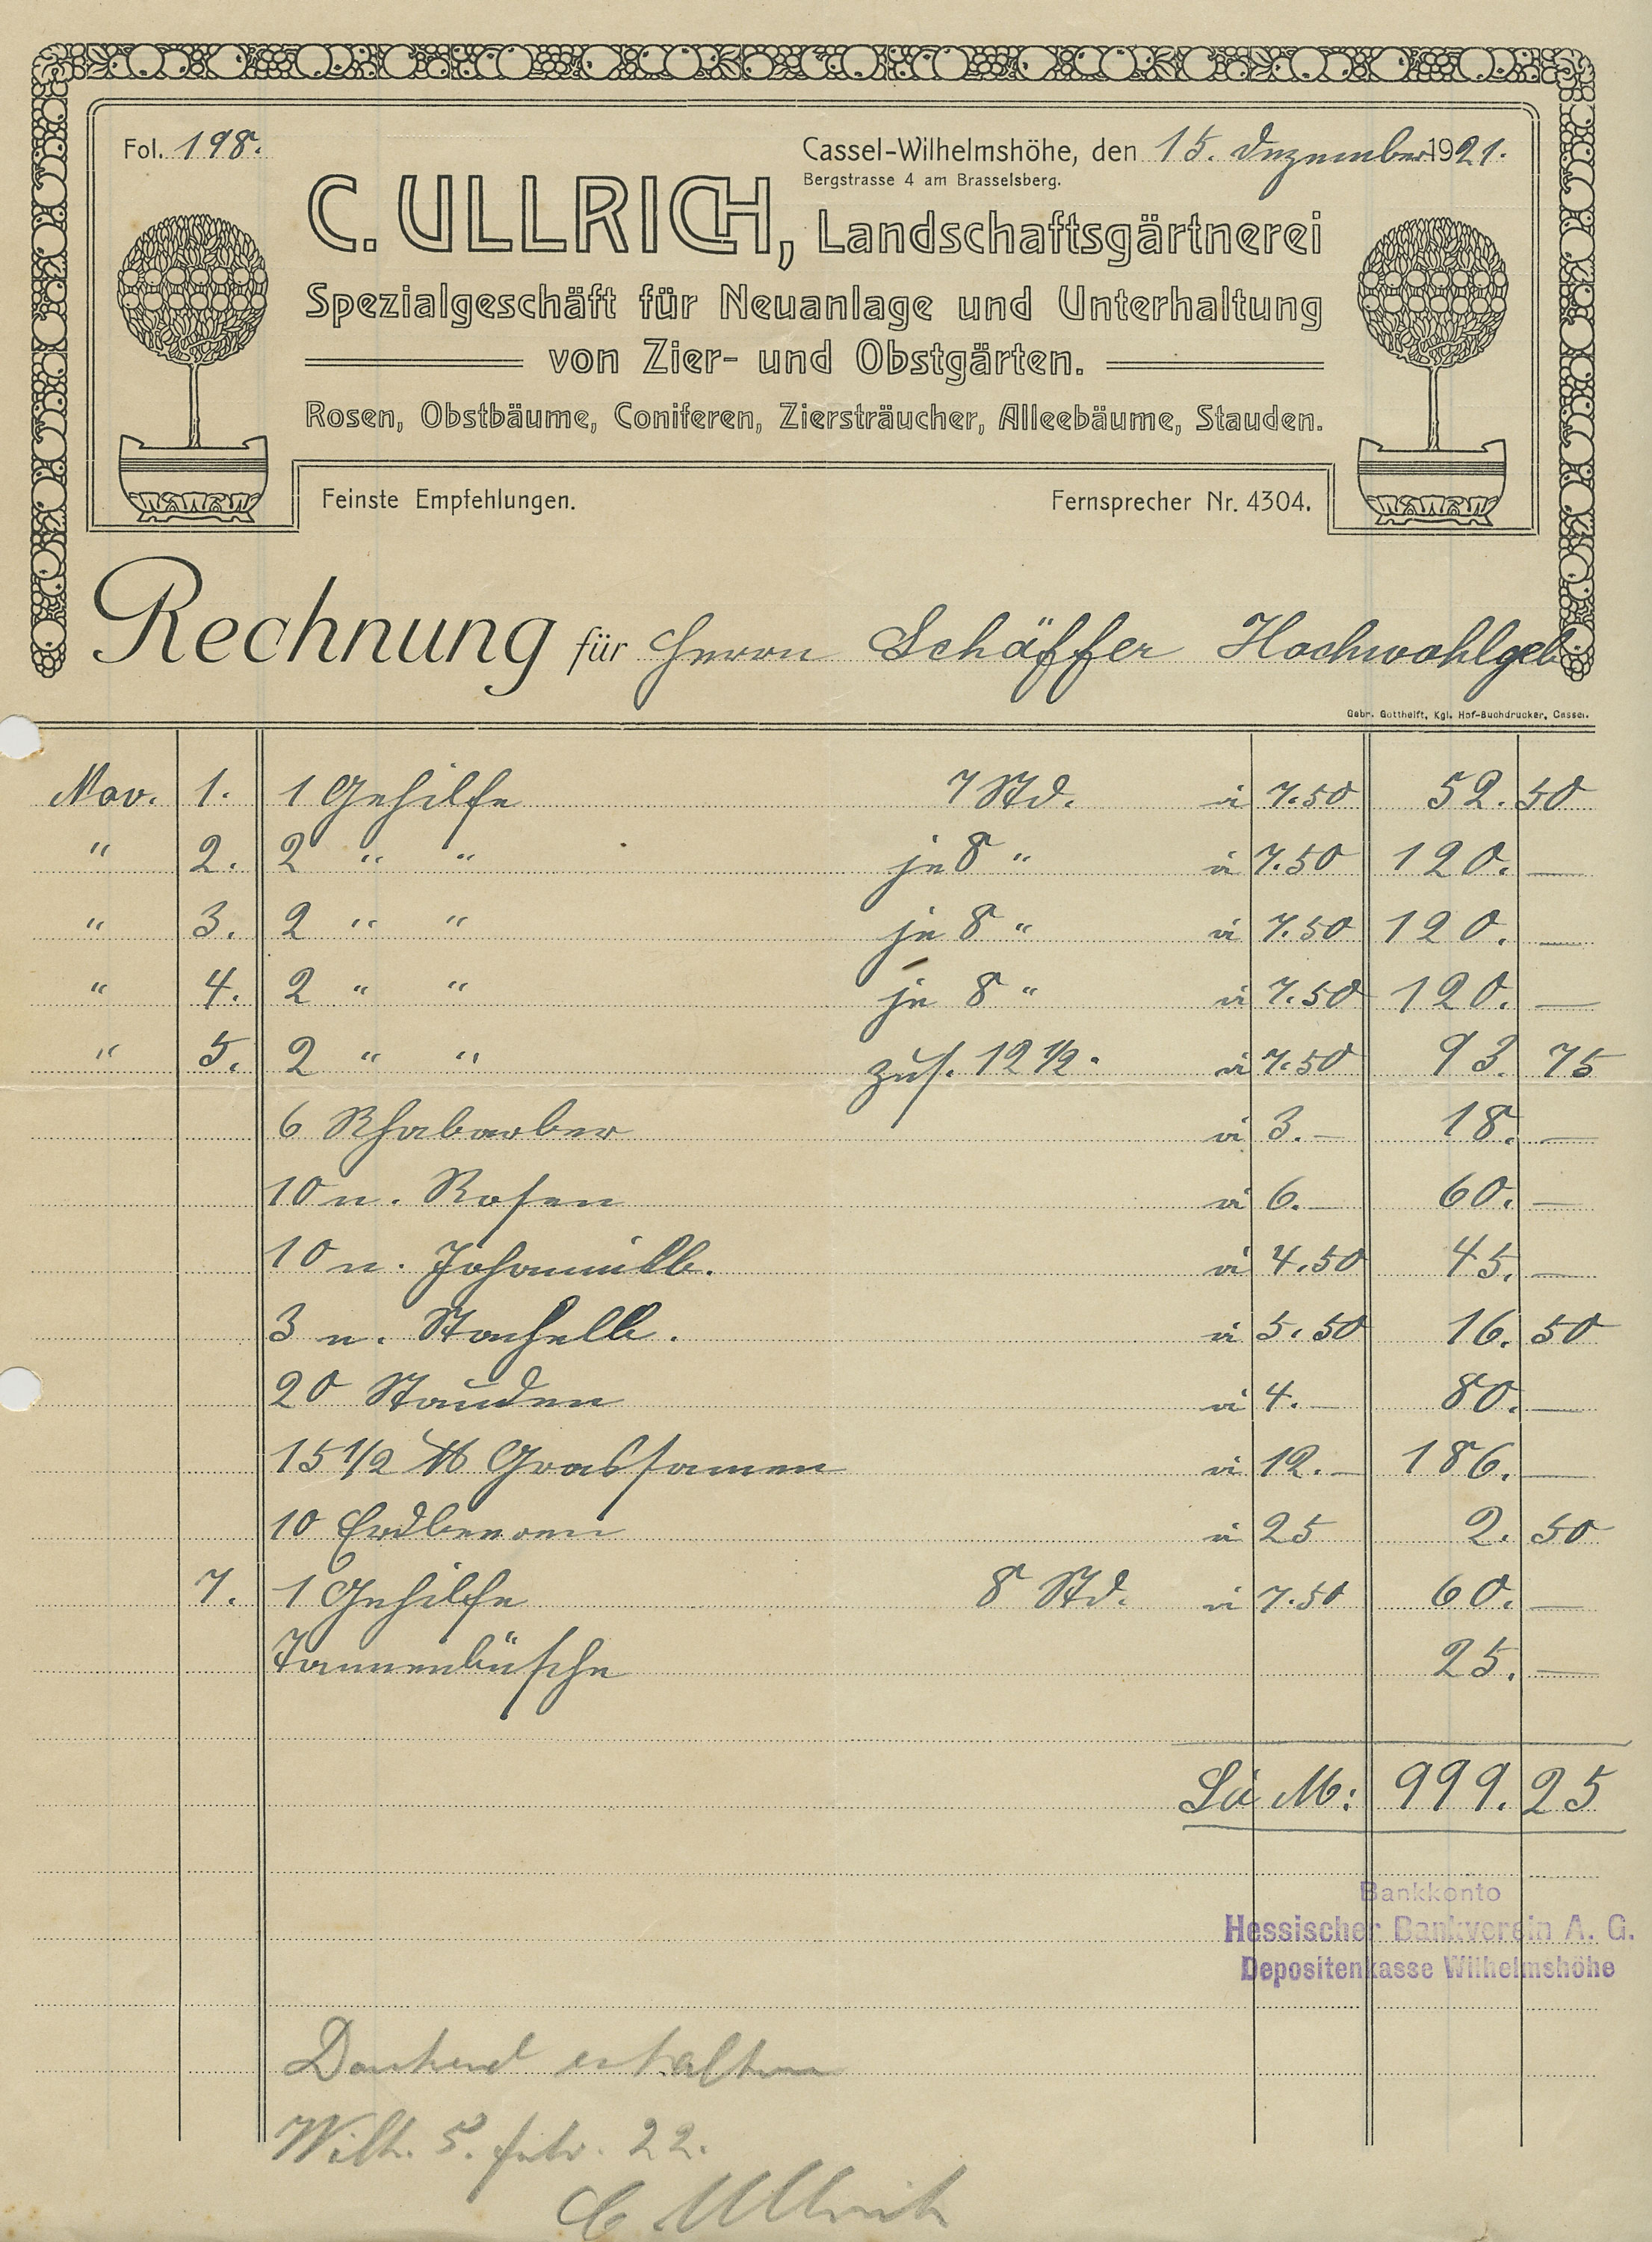 Fol. 198.
Cassel-Wilhelmshöhe, den 15. Dezember 1921.
Bergstrasse 4 am Brasselsberg.
C. ULLRICH, Landschaftsgärtnerei
Spezialgeschäft für Neuanlage und Unterhaltung
von Zier- und Obstgärten.
Rosen, Obstbäume, Coniferen, Ziersträucher, Alleebäume, Stauden.
Feinste Empfehlungen. Fernsprecher Nr. 4304.
Rechnung für Herrn Schäffer Hochwohlgeb
Gebr. Gotthelft, Kgl. Hof-Buchdrucker, Cassel.
Nov. 1. 1 Gehilfe 7 Std. à 7.50 52.50
" 2. 2 " " je 8 " à 7.50 120.—
" 3. 2 " " je 8 " à 7.50 120.—
" 4. 2 " " je 8 " à 7.50 120.—
" 5. 2 " " zus. 12 1/2. à 7.50 93.75
6 Rhabarber à 3.— 18.—
10 n. Rosen à 6.— 60.—
10 n. Johannisb. à 4.50 45.—
3 n. Stachelb. à 5.50 16.50
20 Stauden à 4.— 80.—
15 1/2 ℔ Grassamen à 12.— 186.—
10 Erdbeeren à 25 2.50
7. 1 Gehilfe 8 Std. à 7.50 60.—
Tannenbüsche 25.—
Sa M: 999.25
Bankkonto
Hessischer Bankverein A. G.
Depositenkasse Wilhelmshöhe
Dankend erhalten
Wilh. 5. Febr. 22.
C Ullrich